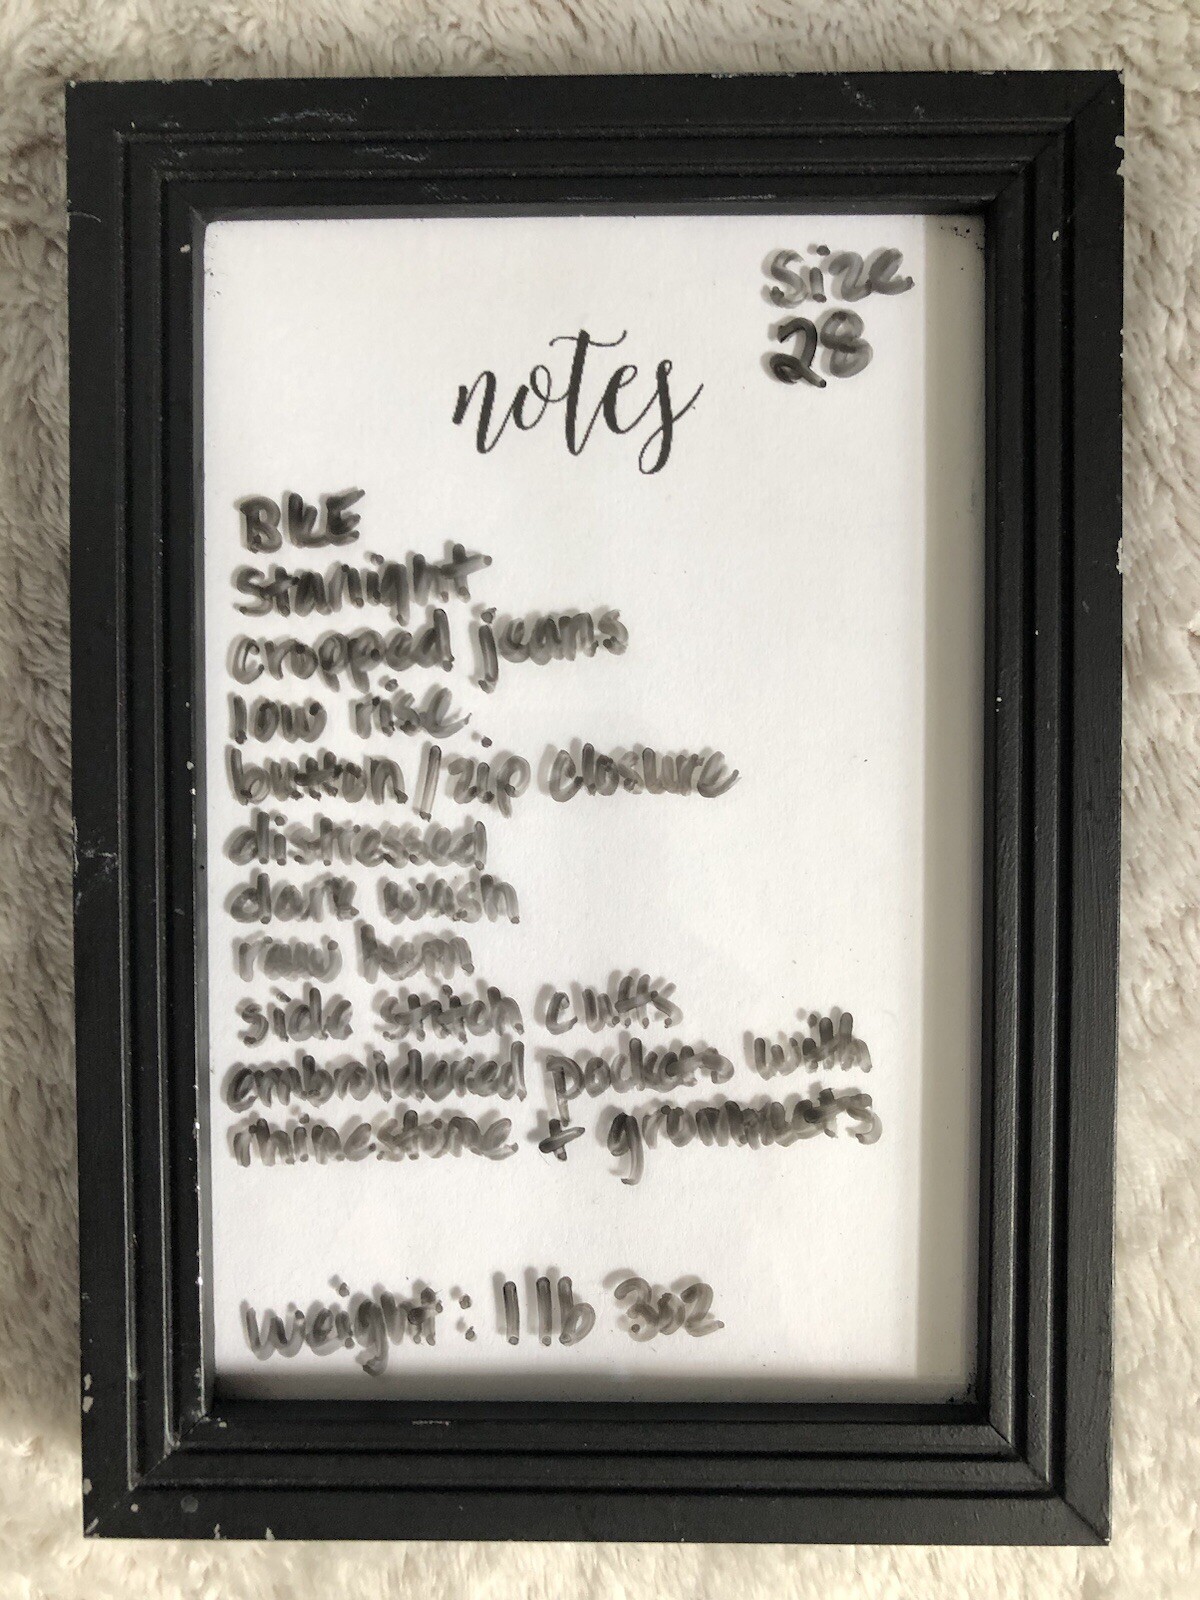 Size
28
notes
BKE
Straight
cropped jeans
low rise
button/zip closure
distressed
dark wash
raw hem
side stitch cuffs
embroidered pockets with
rhinestone + grommets
weight: 1 lb 3oz